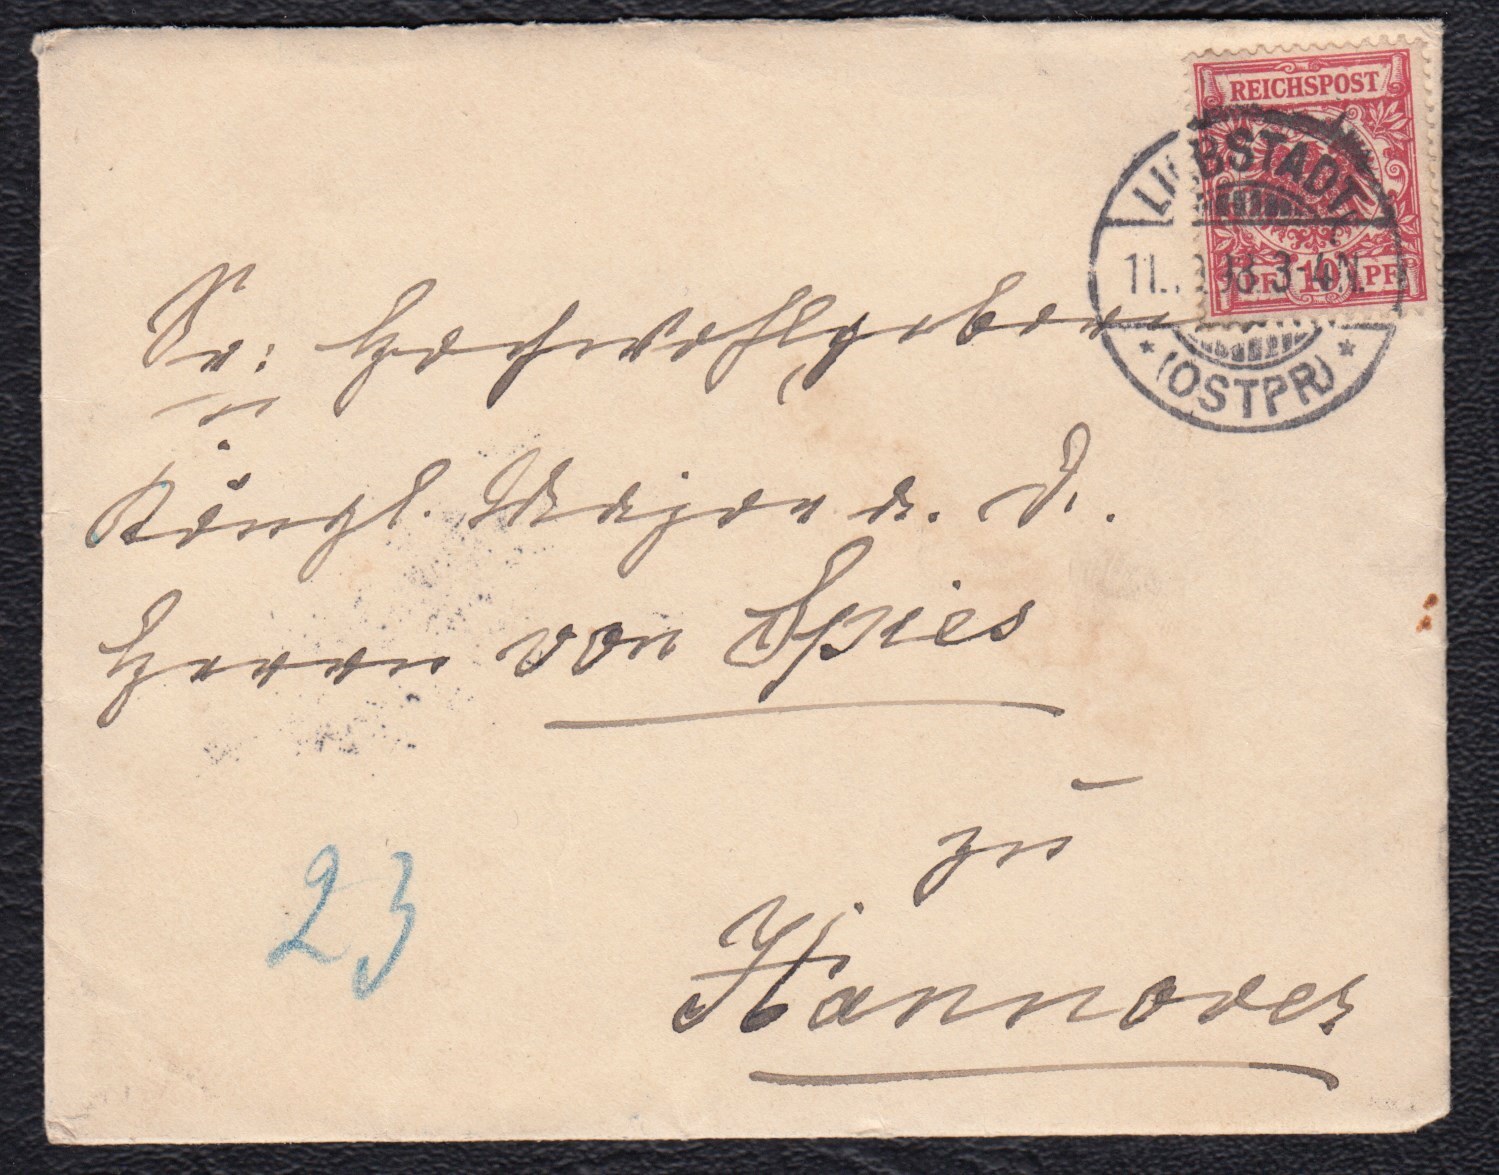 REICHSPOST
10 PF
LIEBSTADT
98 3-4N.
* (OSTPR) *
Sr: Hochwohlgeboren
Königl. Major a. D.
Herrn von Spies
zu
Hannover
23